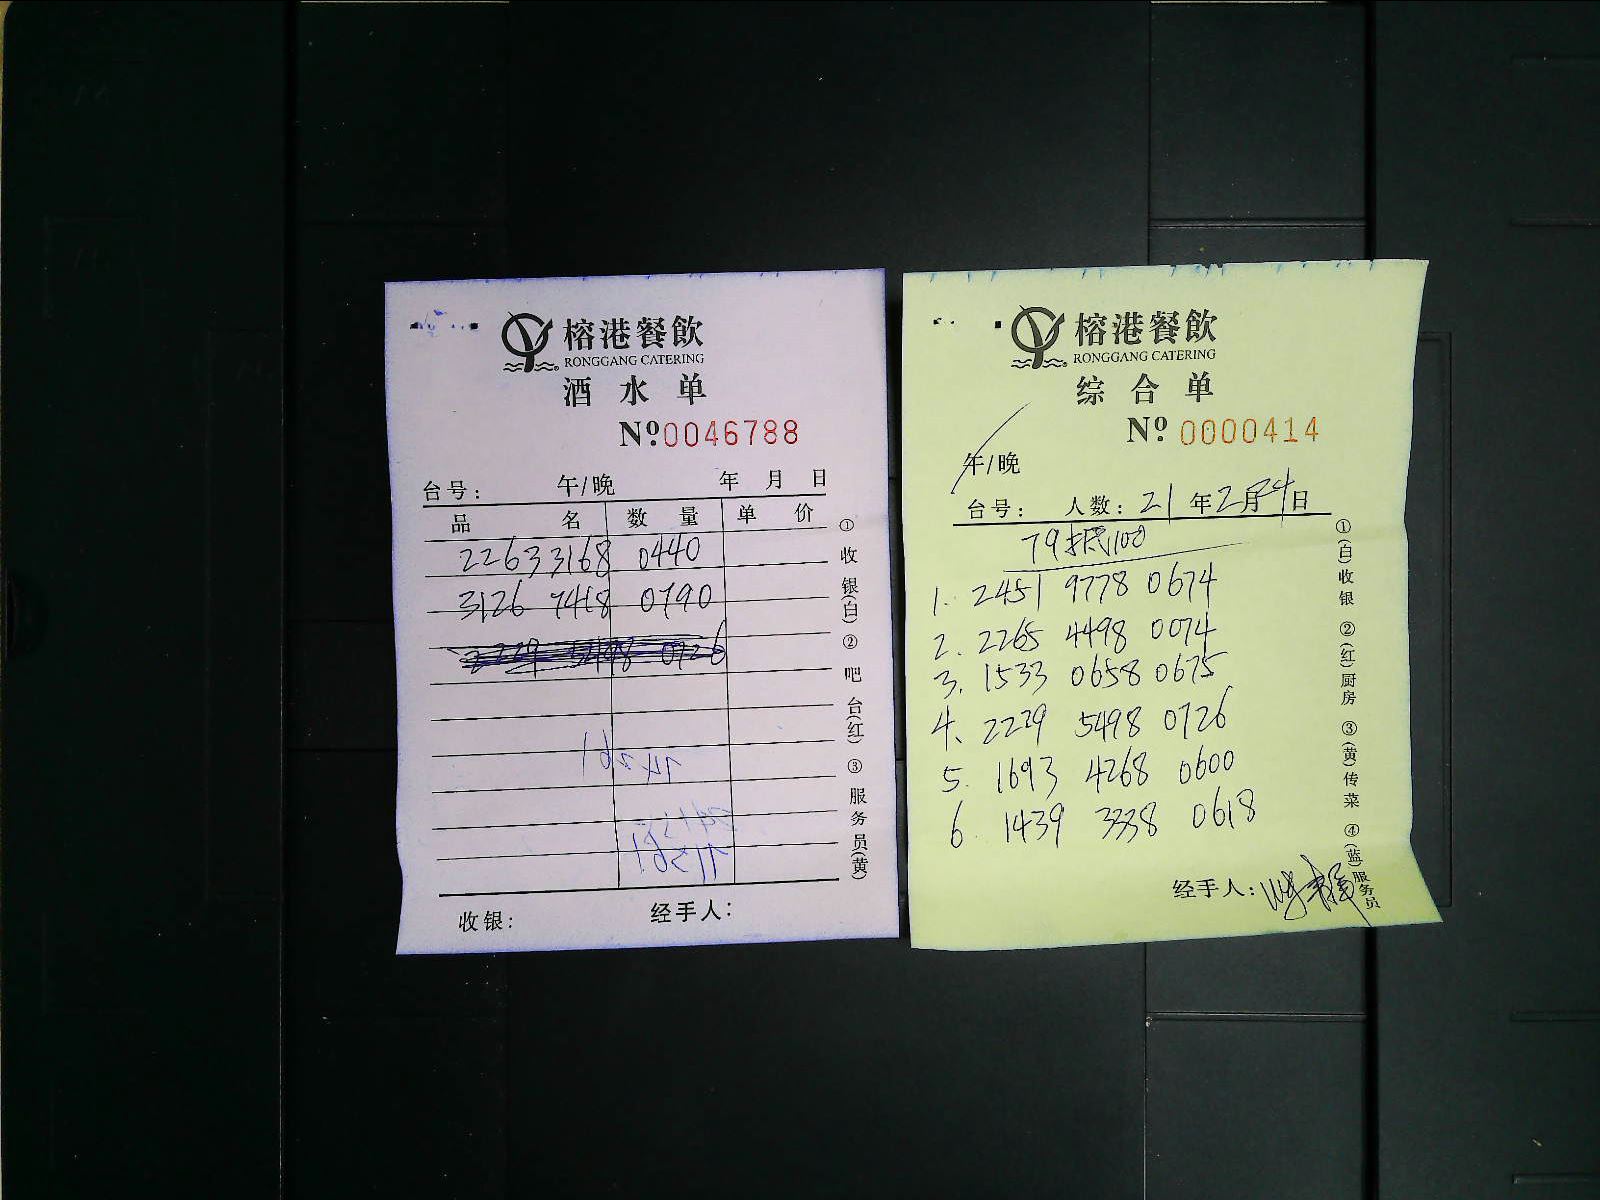 榕港餐飲
RONGGANG CATERING
酒水单
Nº0046788
台号： 午/晚 年 月 日
品 名 数 量 单 价
2263 3168 0440
3126 7418 0790
收银： 经手人：
①收银(白) ②吧台(红) ③服务员(黄)
榕港餐飲
RONGGANG CATERING
综合单
Nº 0000414
午/晚
台号： 人数：21年2月24日
79抵100
1. 2451 9778 0674
2. 2265 4498 0074
3. 1533 0658 0675
4. 2229 5498 0726
5. 1693 4268 0600
6. 1439 3338 0618
经手人：
①(白)收银 ②(红)厨房 ③(黄)传菜 ④(蓝)服务员